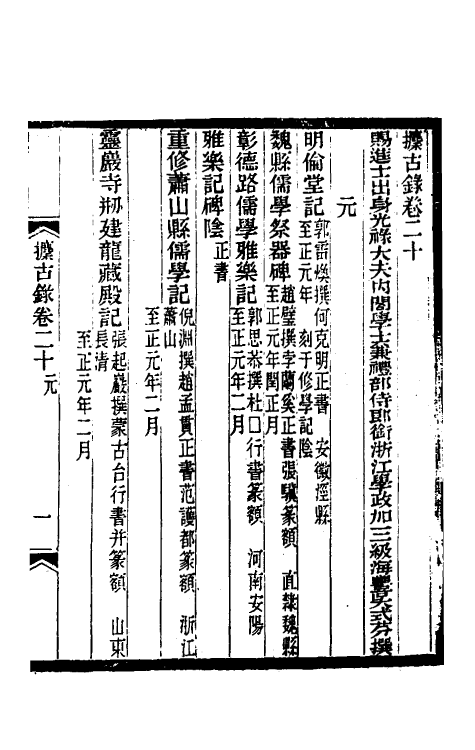 攈古錄卷二十
賜進士出身光祿大夫內閣學士兼禮部侍郎銜浙江學政加三級海豐吳式芬撰
元
明倫堂記郭雷煥撰何克明正書　安徽涇縣
至正元年　刻于修學記陰
魏縣儒學祭器碑趙璧撰李蘭奚正書張驥篆額　直隸魏縣
至正元年閏正月
彰德路儒學雅樂記郭思恭撰杜囗行書篆額　河南安陽
至正元年二月
雅樂記碑陰正書
重修蕭山縣儒學記倪淵撰趙孟貫正書范護都篆額　浙江
蕭山
至正元年二月
靈巖寺刱建龍藏殿記張起巖撰蒙古台行書并篆額　山東
長清
至正元年二月
攈古錄卷二十元　一